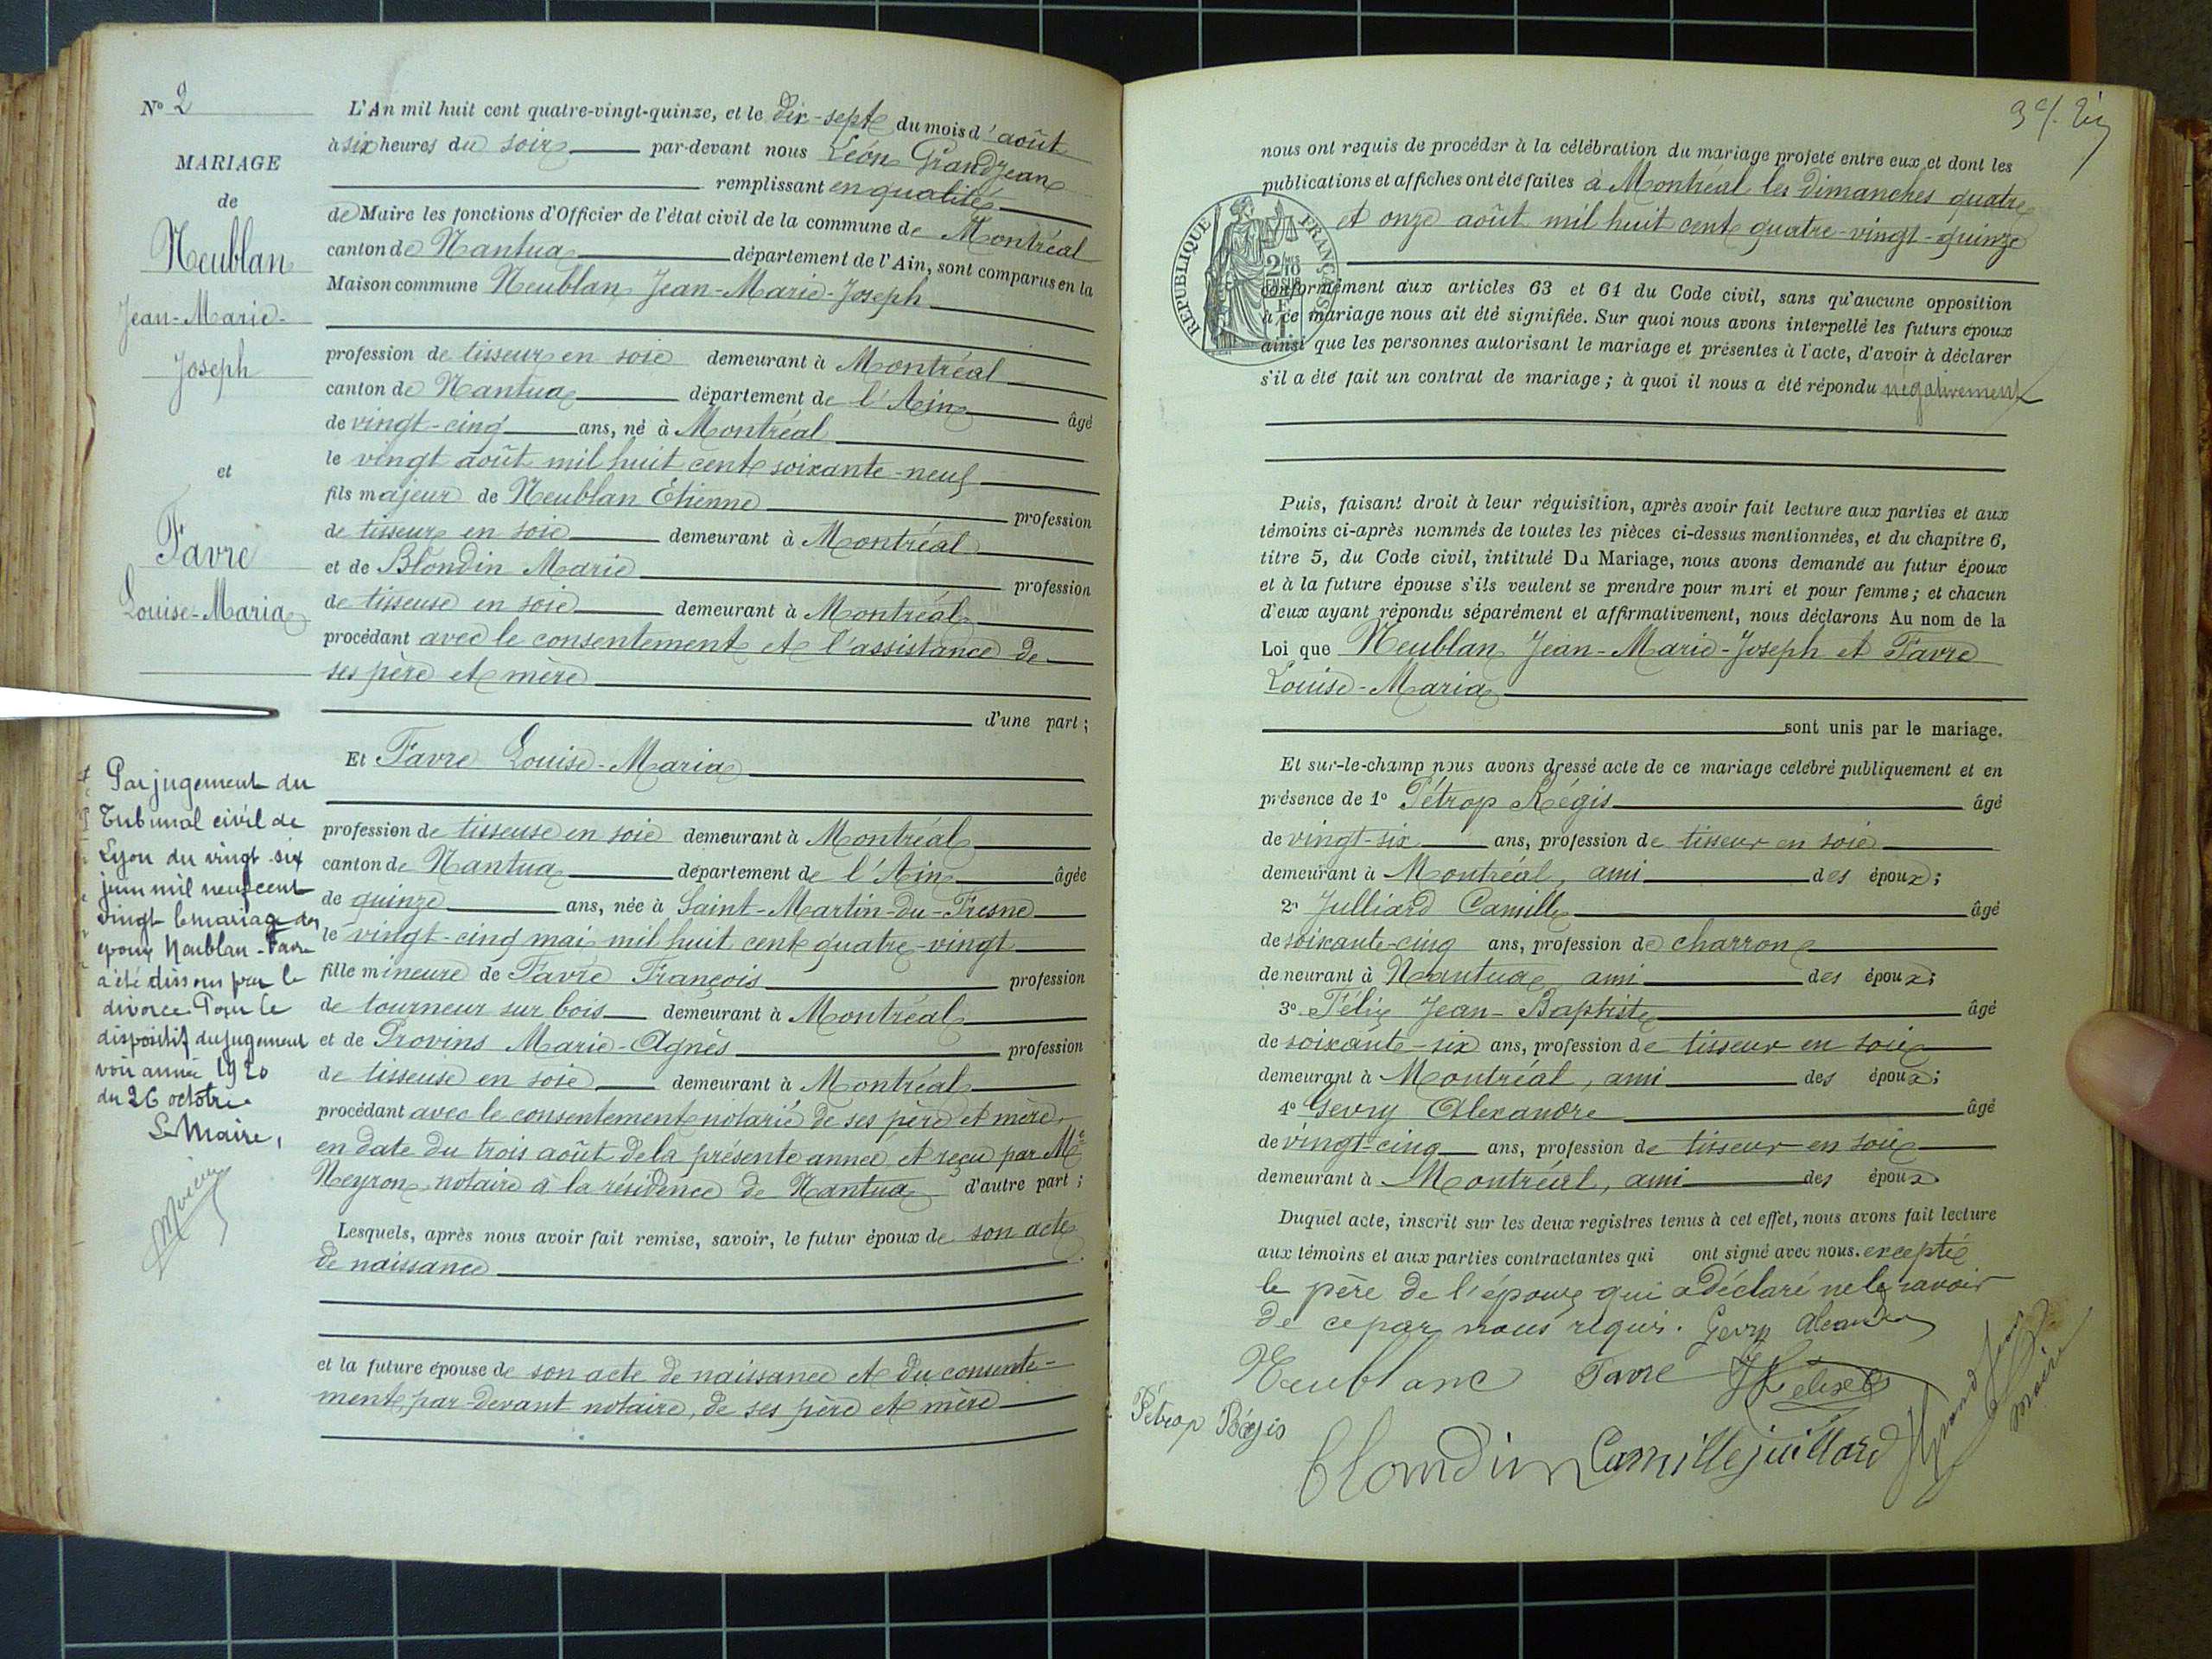 N° 2
MARIAGE
de
Neublan
Jean-Marie-
Joseph
et
Favre
Louise-Maria
Par jugement du
Tribunal civil de
Lyon du vingt-six
juin mil neuf cent
vingt le mariage des
époux Neublan-Favre
a été dissous par le
divorce. Pour le
dispositif du jugement
voir année 1920
du 26 octobre.
Le Maire,
L'An mil huit cent quatre-vingt-quinze, et le dix-sept du mois d'août
à six heures du soir par-devant nous Léon Grandjean
remplissant en qualité
de Maire les fonctions d'Officier de l'état civil de la commune de Montréal
canton de Nantua département de l'Ain, sont comparus en la
Maison commune Neublan Jean-Marie-Joseph
profession de tisseur en soie demeurant à Montréal
canton de Nantua département de l'Ain âgé
de vingt-cinq ans, né à Montréal
le vingt août mil huit cent soixante-neuf
fils majeur de Neublan Étienne profession
de tisseur en soie demeurant à Montréal
et de Blondin Marie profession
de tisseuse en soie demeurant à Montréal
procédant avec le consentement et l'assistance de
ses père et mère
d'une part;
Et Favre Louise-Maria
profession de tisseuse en soie demeurant à Montréal
canton de Nantua département de l'Ain âgée
de quinze ans, née à Saint-Martin-du-Fresne
le vingt-cinq mai mil huit cent quatre-vingt
fille mineure de Favre François profession
de tourneur sur bois demeurant à Montréal
et de Provins Marie-Agnès profession
de tisseuse en soie demeurant à Montréal
procédant avec le consentement notarié de ses père et mère,
en date du trois août de la présente année et reçu par Me
Neyron, notaire à la résidence de Nantua d'autre part;
Lesquels, après nous avoir fait remise, savoir, le futur époux de son acte
de naissance
et la future épouse de son acte de naissance et du consente-
ment par-devant notaire, de ses père et mère
nous ont requis de procéder à la célébration du mariage projeté entre eux et dont les
publications et affiches ont été faites à Montréal les dimanches quatre
et onze août mil huit cent quatre-vingt-quinze
RÉPUBLIQUE FRANÇAISE
conformément aux articles 63 et 64 du Code civil, sans qu'aucune opposition
à ce mariage nous ait été signifiée. Sur quoi nous avons interpellé les futurs époux
ainsi que les personnes autorisant le mariage et présentes à l'acte, d'avoir à déclarer
s'il a été fait un contrat de mariage; à quoi il nous a été répondu négativement
Puis, faisant droit à leur réquisition, après avoir fait lecture aux parties et aux
témoins ci-après nommés de toutes les pièces ci-dessus mentionnées, et du chapitre 6,
titre 5, du Code civil, intitulé Du Mariage, nous avons demandé au futur époux
et à la future épouse s'ils veulent se prendre pour mari et pour femme; et chacun
d'eux ayant répondu séparément et affirmativement, nous déclarons Au nom de la
Loi que Neublan Jean-Marie-Joseph et Favre
Louise-Maria
sont unis par le mariage.
Et sur-le-champ nous avons dressé acte de ce mariage célébré publiquement et en
présence de 1° Pétrop Régis âgé
de vingt-six ans, profession de tisseur en soie
demeurant à Montréal, ami des époux;
2° Julliard Camille âgé
de soixante-cinq ans, profession de charron
demeurant à Nantua, ami des époux;
3° Félix Jean-Baptiste âgé
de soixante-six ans, profession de tisseur en soie
demeurant à Montréal, ami des époux;
4° Gevry Alexandre âgé
de vingt-cinq ans, profession de tisseur en soie
demeurant à Montréal, ami des époux
Duquel acte, inscrit sur les deux registres tenus à cet effet, nous avons fait lecture
aux témoins et aux parties contractantes qui ont signé avec nous. excepté
le père de l'époux qui a déclaré ne le savoir
de ce par nous requis. Gevry
Neublanc Favre Félix
Pétrop Régis
Blondin Camille juillard Grandjean
maire